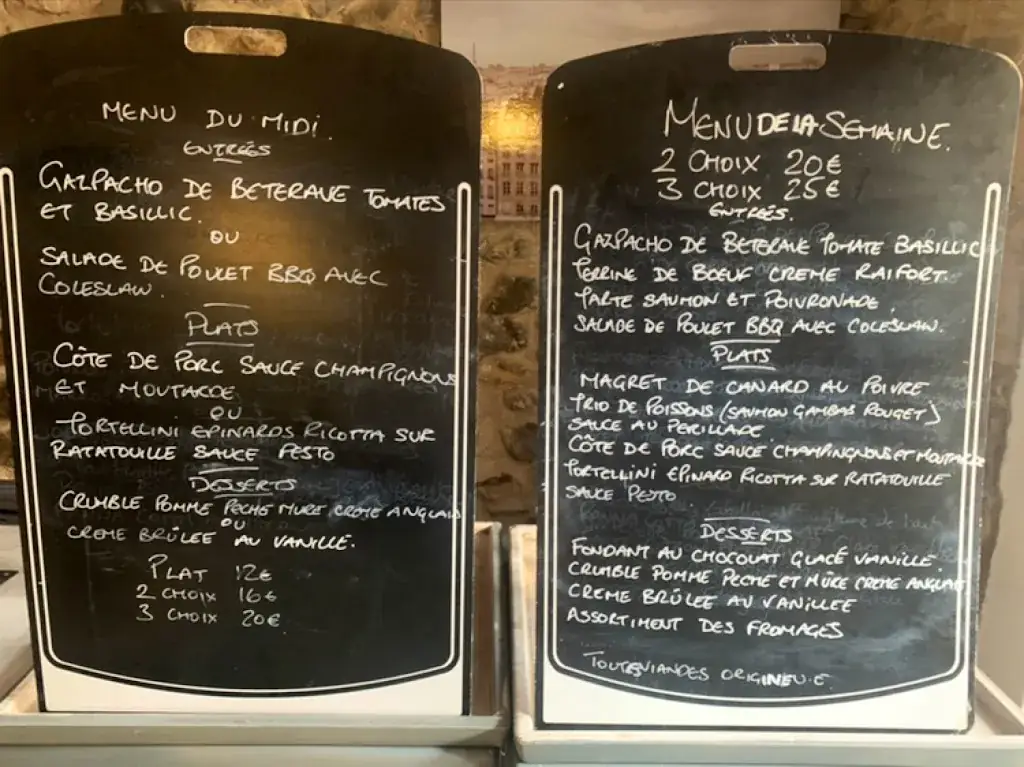 MENU DU MIDI.
ENTRÉES
GAZPACHO DE BETERAVE TOMATES
ET BASILLIC.
OU
SALADE DE POULET BBQ AVEC
COLESLAW.
PLATS
CÔTE DE PORC SAUCE CHAMPIGNONS
ET MOUTARDE
OU
TORTELLINI EPINARDS RICOTTA SUR
RATATOUILLE SAUCE PESTO
DESSERTS
CRUMBLE POMME PECHE MURE CREME ANGLAIS
OU
CREME BRÛLEE AU VANILLE.
PLAT 12€
2 CHOIX 16€
3 CHOIX 20€
MENU DE LA SEMAINE.
2 CHOIX 20€
3 CHOIX 25€
ENTRÉES.
GAZPACHO DE BETERAVE TOMATE BASILLIC
TERRINE DE BŒUF CREME RAIFORT.
TARTE SAUMON ET POIVRONADE.
SALADE DE POULET BBQ AVEC COLESLAW.
PLATS
MAGRET DE CANARD AU POIVRE
TRIO DE POISSONS (SAUMON GAMBAS ROUGET)
SAUCE AU PERSILLADE
CÔTE DE PORC SAUCE CHAMPINGNONS ET MOUTARDE
TORTELLINI EPINARD RICOTTA SUR RATATOUILLE
SAUCE PESTO
DESSERTS
FONDANT AU CHOCOLAT GLACÉ VANILLE.
CRUMBLE POMME PECHE ET MÛRE CREME ANGLAIS
CREME BRÛLEE AU VANILLEE
ASSORTIMENT DES FROMAGES
TOUTES VIANDES ORIGINE U.E